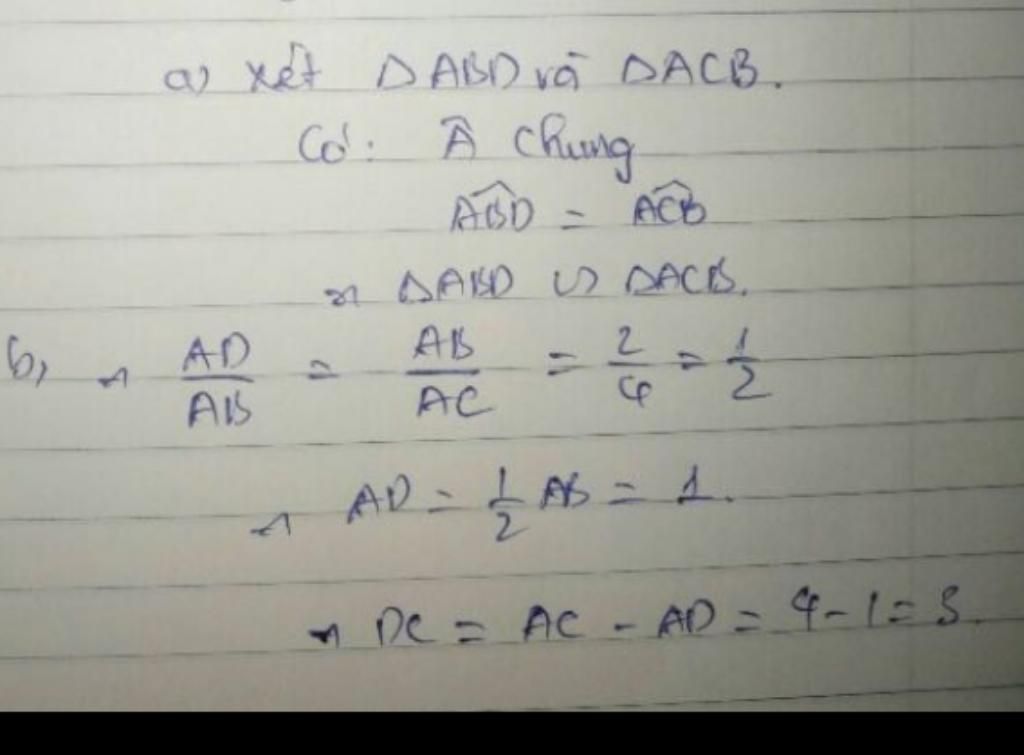 a) Xét ΔABD và ΔACB.
Có: Â chung
\widehat{ABD} = \widehat{ACB}
⇒ ΔABD ∽ ΔACB.
b, ⇒ AD/AB = AB/AC = 2/4 = 1/2
⇒ AD = 1/2 AB = 1.
⇒ DC = AC - AD = 4 - 1 = 3.